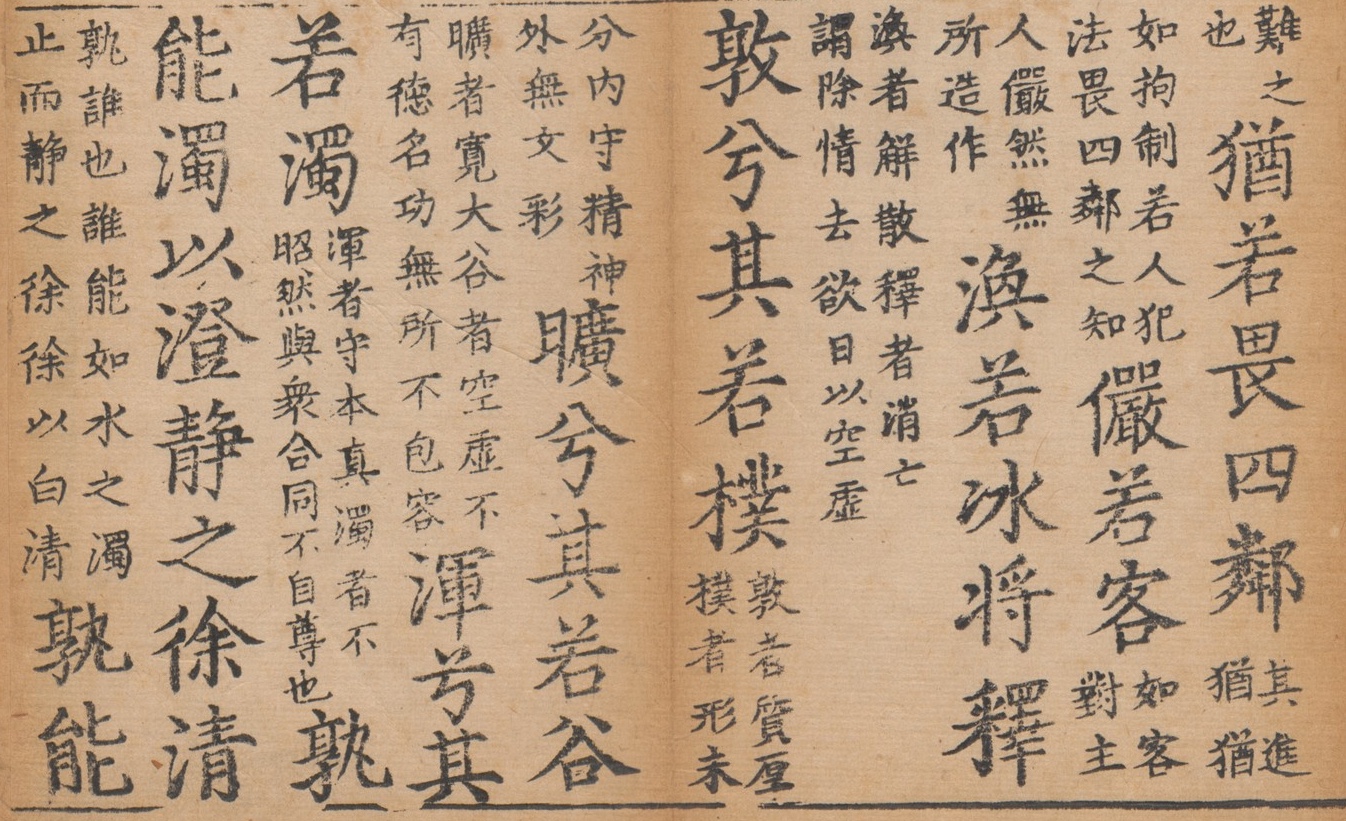 難之也猶若畏四鄰其進猶猶
如拘制若人犯法畏四鄰之知儼若客如客對主
人儼然無所造作渙若冰将釋
渙者解散釋者消亡謂除情去欲日以空虛
敦兮其若樸敦者質厚樸者形未
分内守精神外無文彩曠兮其若谷
曠者寬大谷者空虛不有德名功無所不包容渾兮其
若濁渾者守本真濁者不昭然與衆合同不自尊也孰
能濁以澄静之徐清
孰誰也誰能如水之濁止而静之徐徐以白清孰能